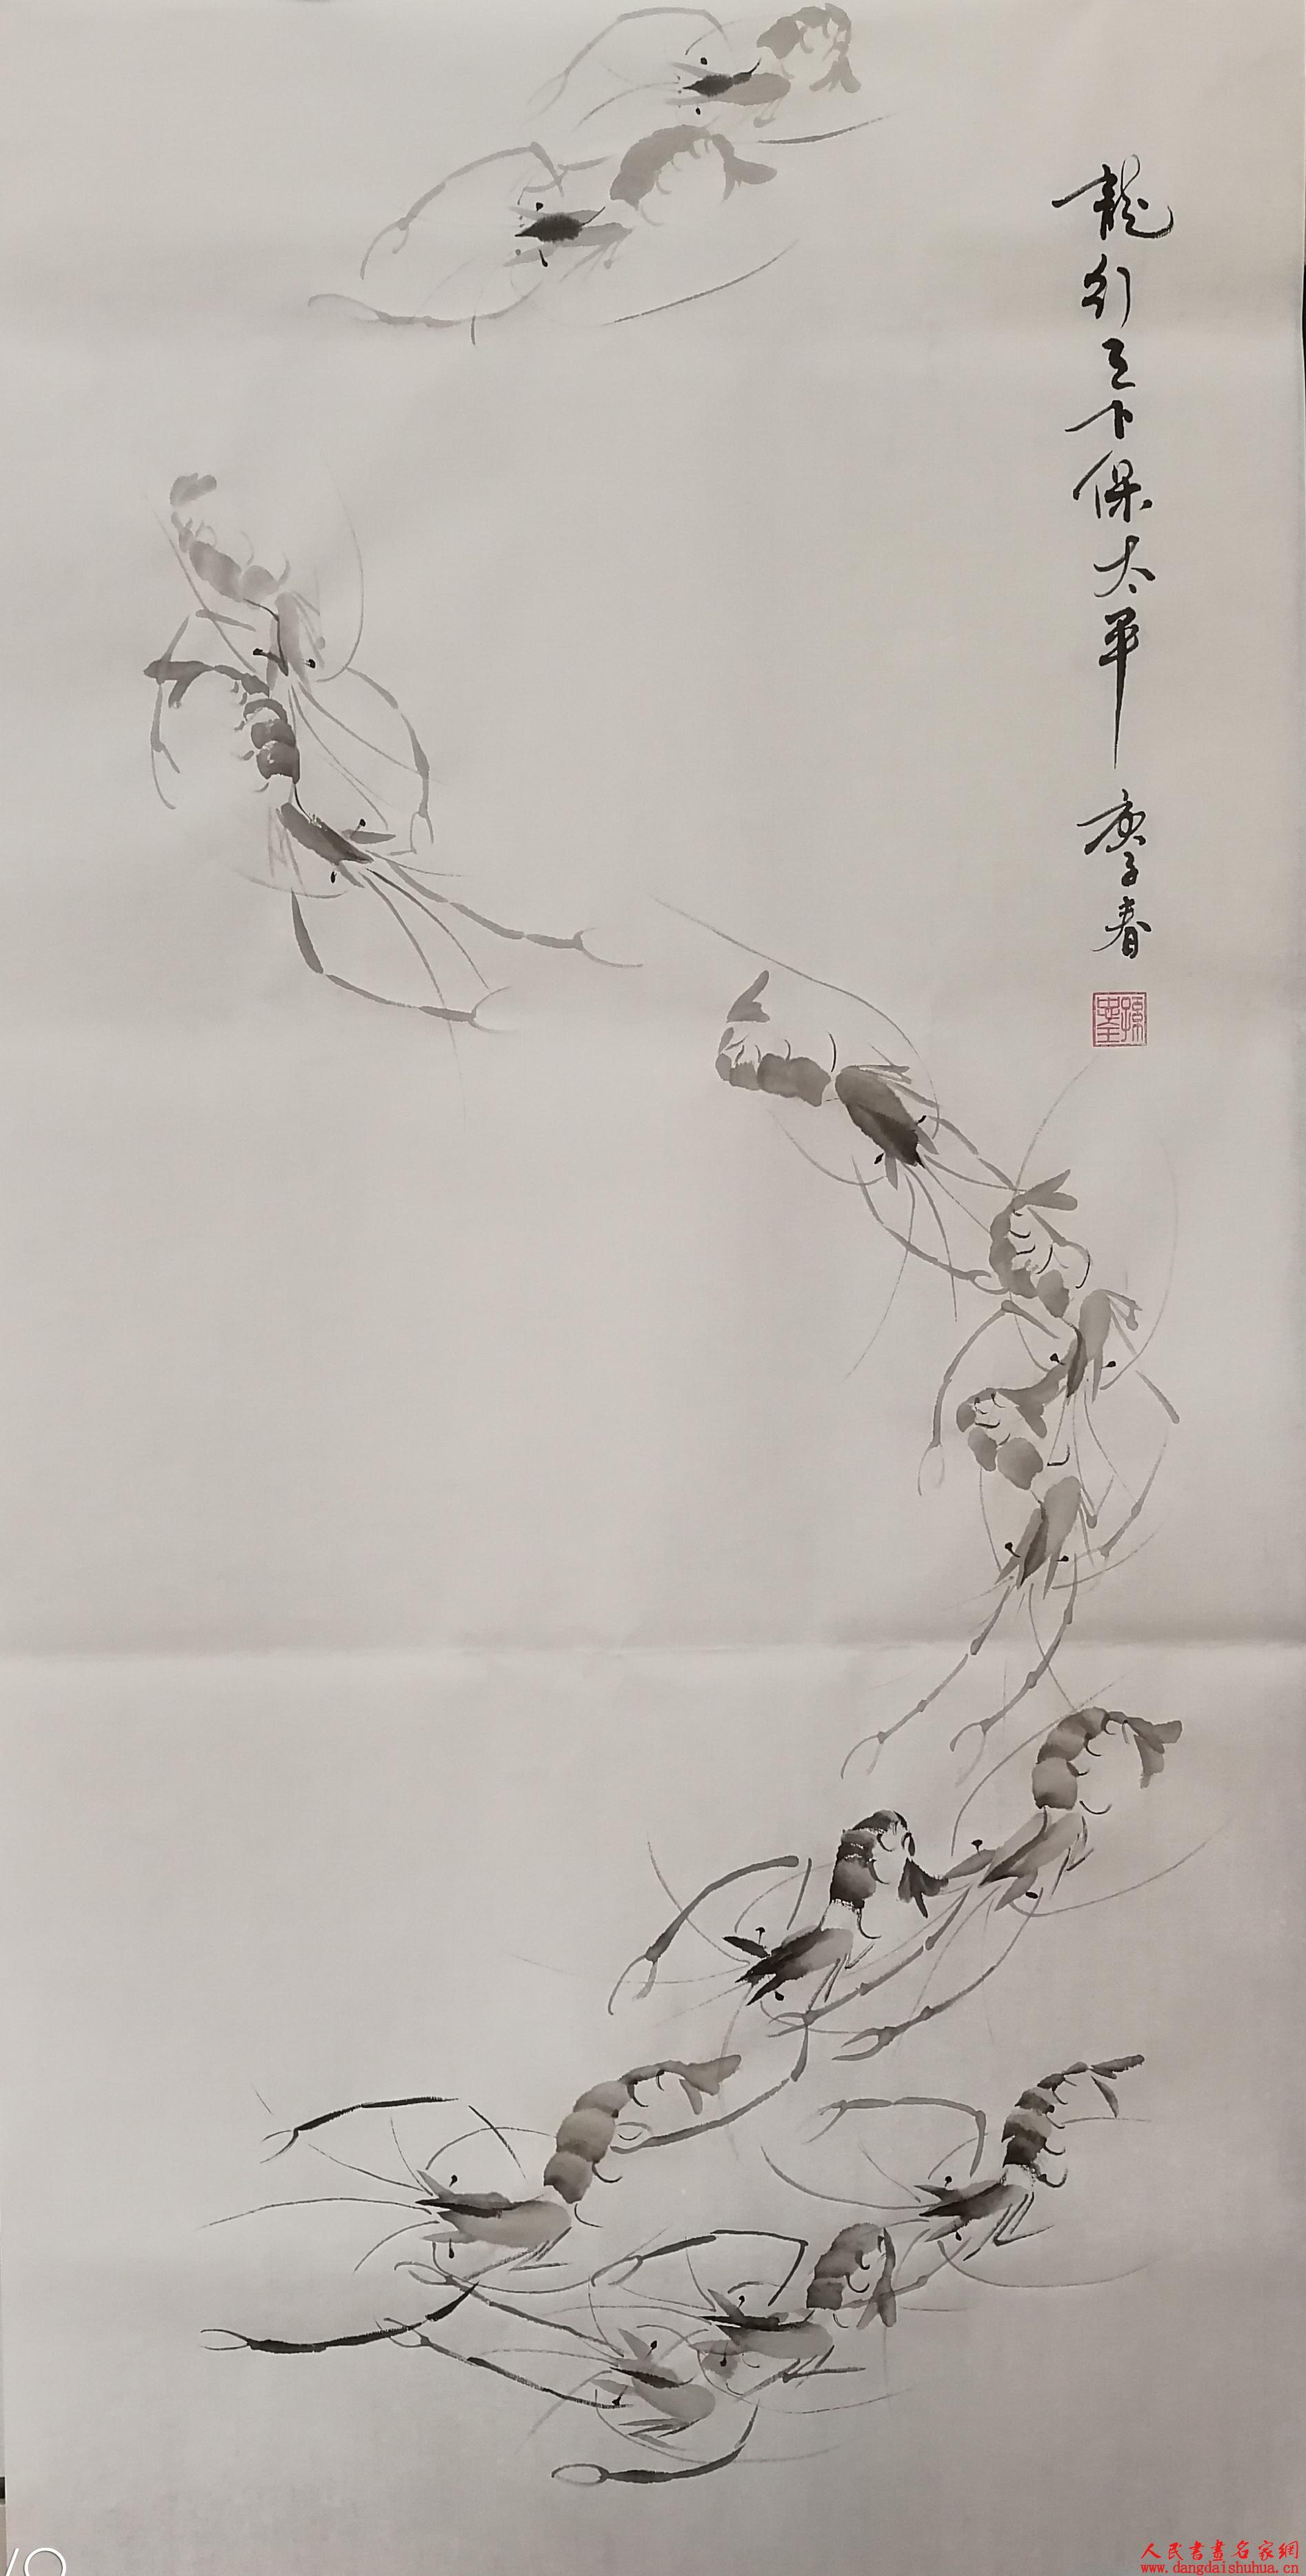 龍行天下保太平 庚子春
人民書畫名家網
www.dangdaishuhua.cn